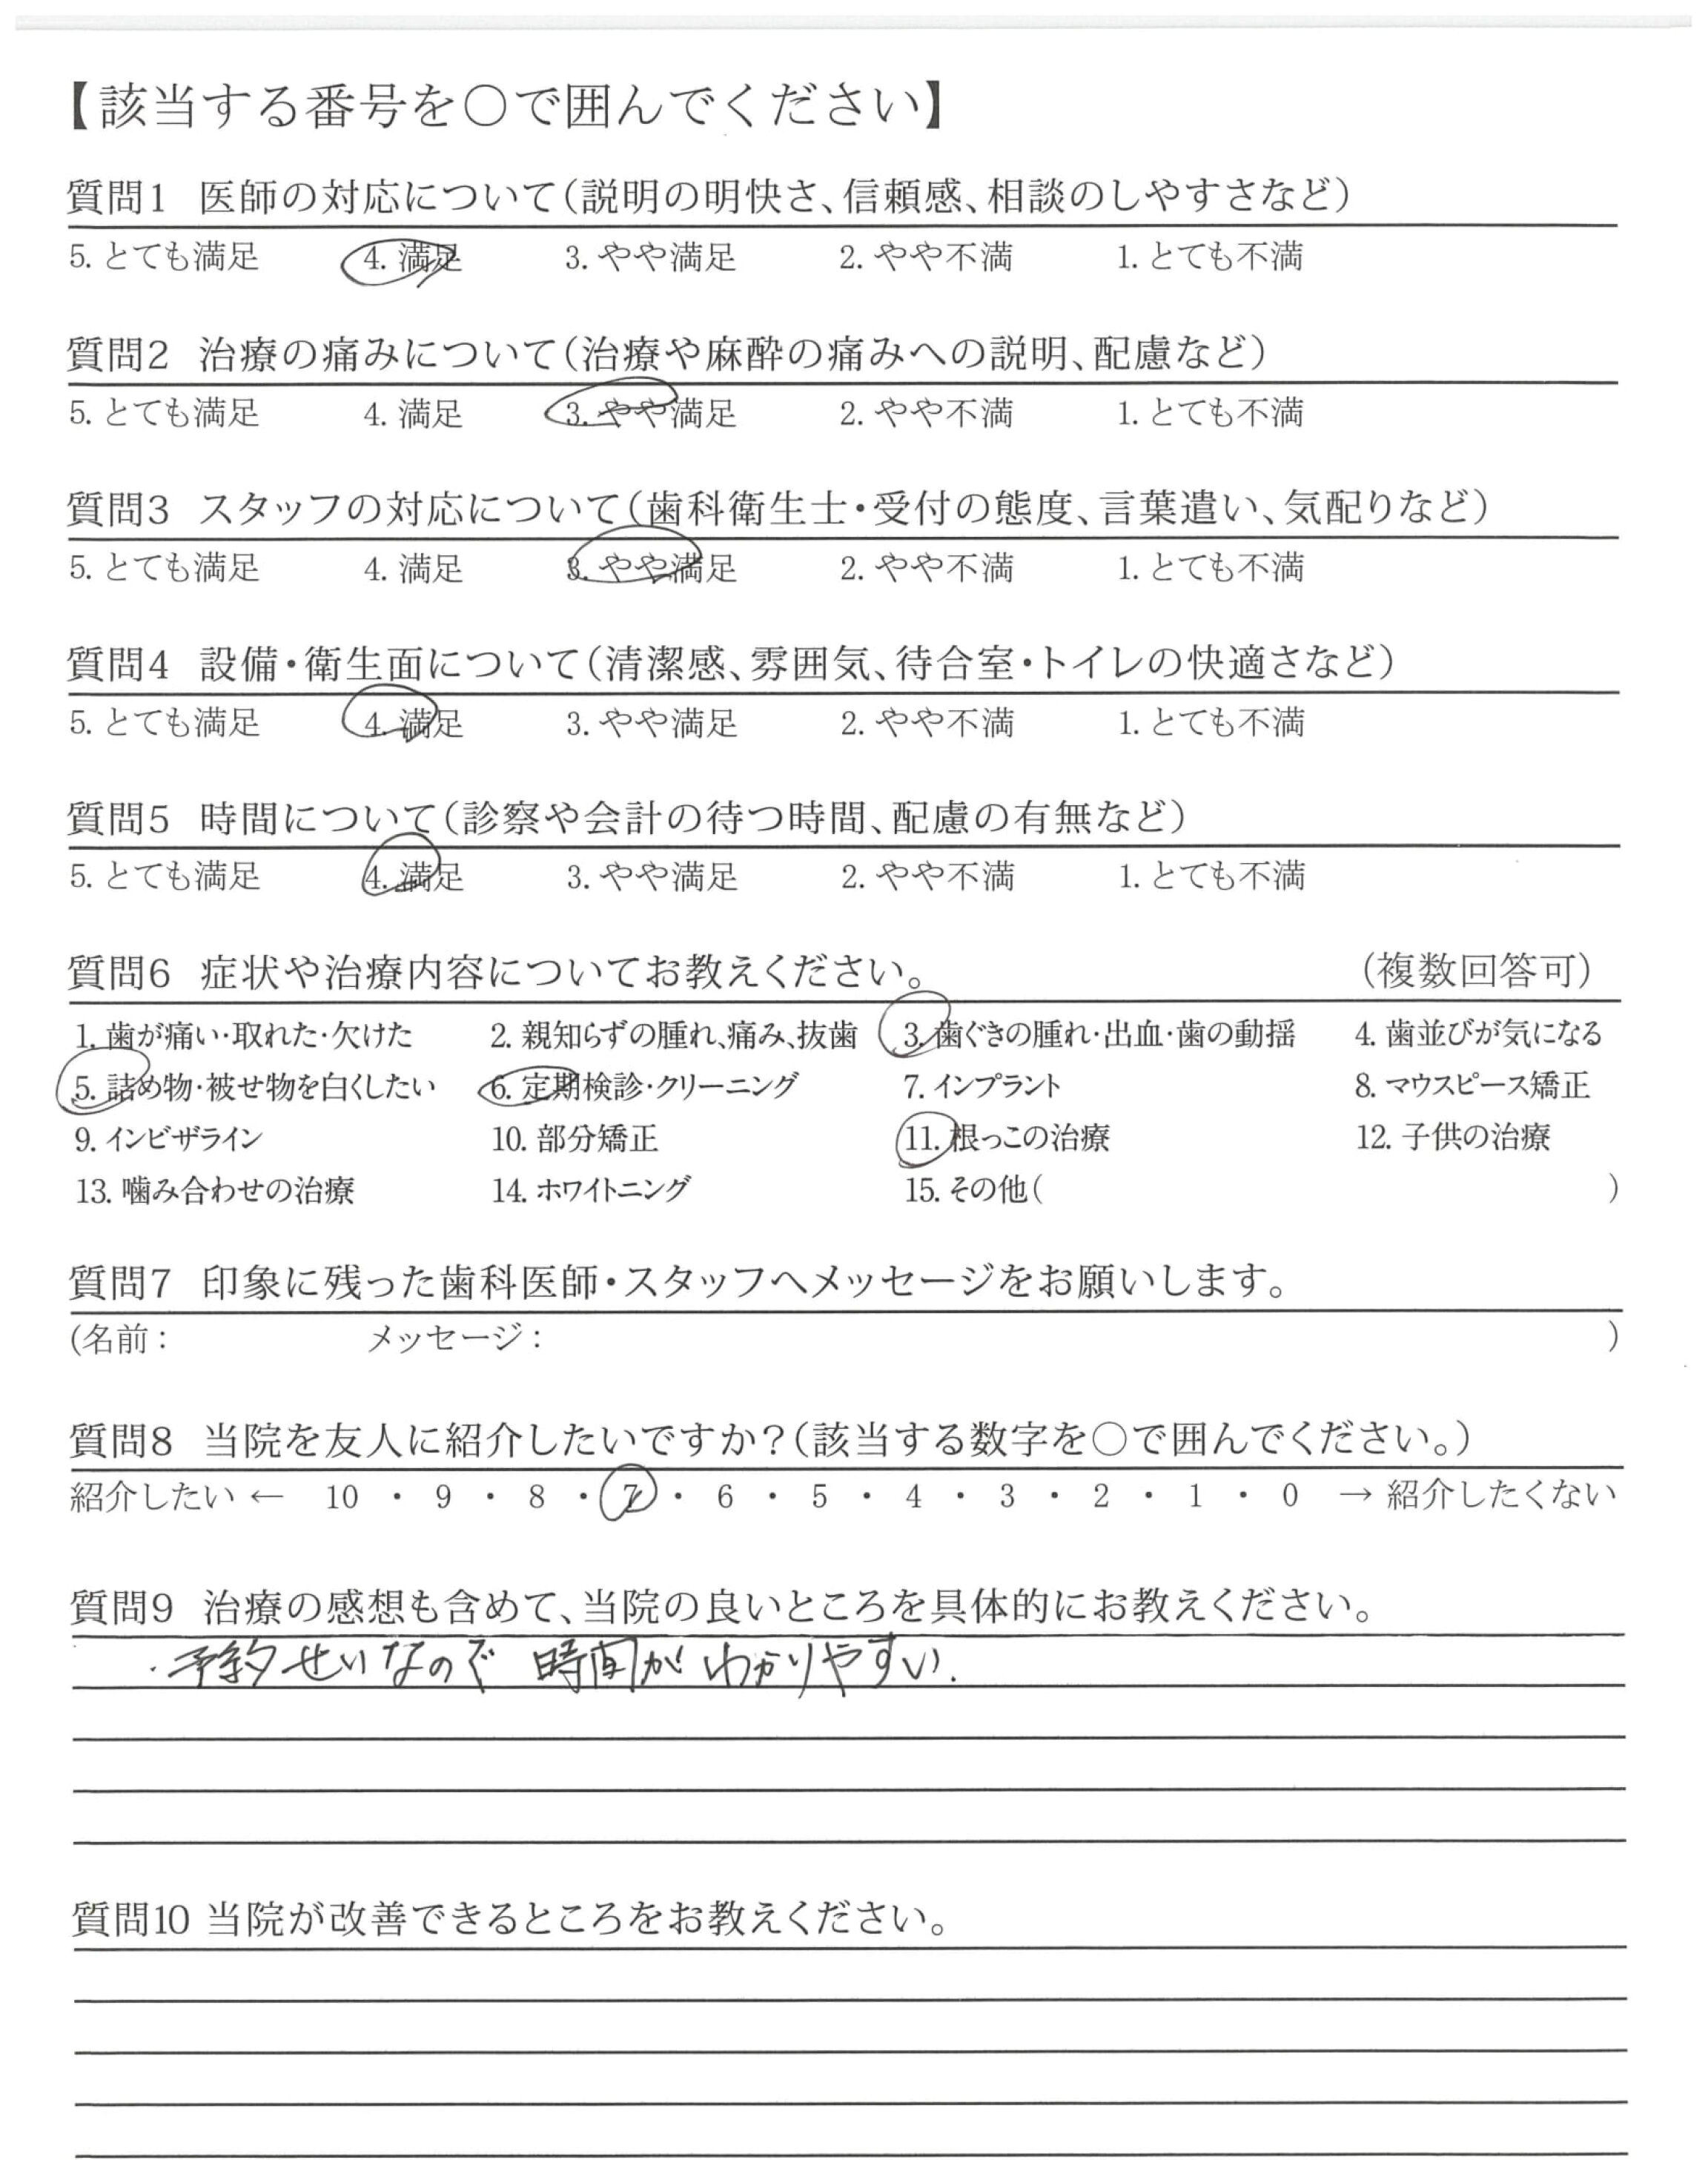 【該当する番号を○で囲んでください】
質問1 医師の対応について(説明の明快さ、信頼感、相談のしやすさなど)
5. とても満足 4. 満足 3. やや満足 2. やや不満 1. とても不満
質問2 治療の痛みについて(治療や麻酔の痛みへの説明、配慮など)
5. とても満足 4. 満足 3. やや満足 2. やや不満 1. とても不満
質問3 スタッフの対応について(歯科衛生士・受付の態度、言葉遣い、気配りなど)
5. とても満足 4. 満足 3. やや満足 2. やや不満 1. とても不満
質問4 設備・衛生面について(清潔感、雰囲気、待合室・トイレの快適さなど)
5. とても満足 4. 満足 3. やや満足 2. やや不満 1. とても不満
質問5 時間について(診察や会計の待つ時間、配慮の有無など)
5. とても満足 4. 満足 3. やや満足 2. やや不満 1. とても不満
質問6 症状や治療内容についてお教えください。 (複数回答可)
1. 歯が痛い・取れた・欠けた 2. 親知らずの腫れ、痛み、抜歯 3. 歯ぐきの腫れ・出血・歯の動揺 4. 歯並びが気になる
5. 詰め物・被せ物を白くしたい 6. 定期検診・クリーニング 7. インプラント 8. マウスピース矯正
9. インビザライン 10. 部分矯正 11. 根っこの治療 12. 子供の治療
13. 噛み合わせの治療 14. ホワイトニング 15. その他( )
質問7 印象に残った歯科医師・スタッフへメッセージをお願いします。
(名前: メッセージ: )
質問8 当院を友人に紹介したいですか?(該当する数字を○で囲んでください。)
紹介したい ← 10 ・ 9 ・ 8 ・ 7 ・ 6 ・ 5 ・ 4 ・ 3 ・ 2 ・ 1 ・ 0 → 紹介したくない
質問9 治療の感想も含めて、当院の良いところを具体的にお教えください。
・予約せいなので 時間がわかりやすい.
質問10 当院が改善できるところをお教えください。